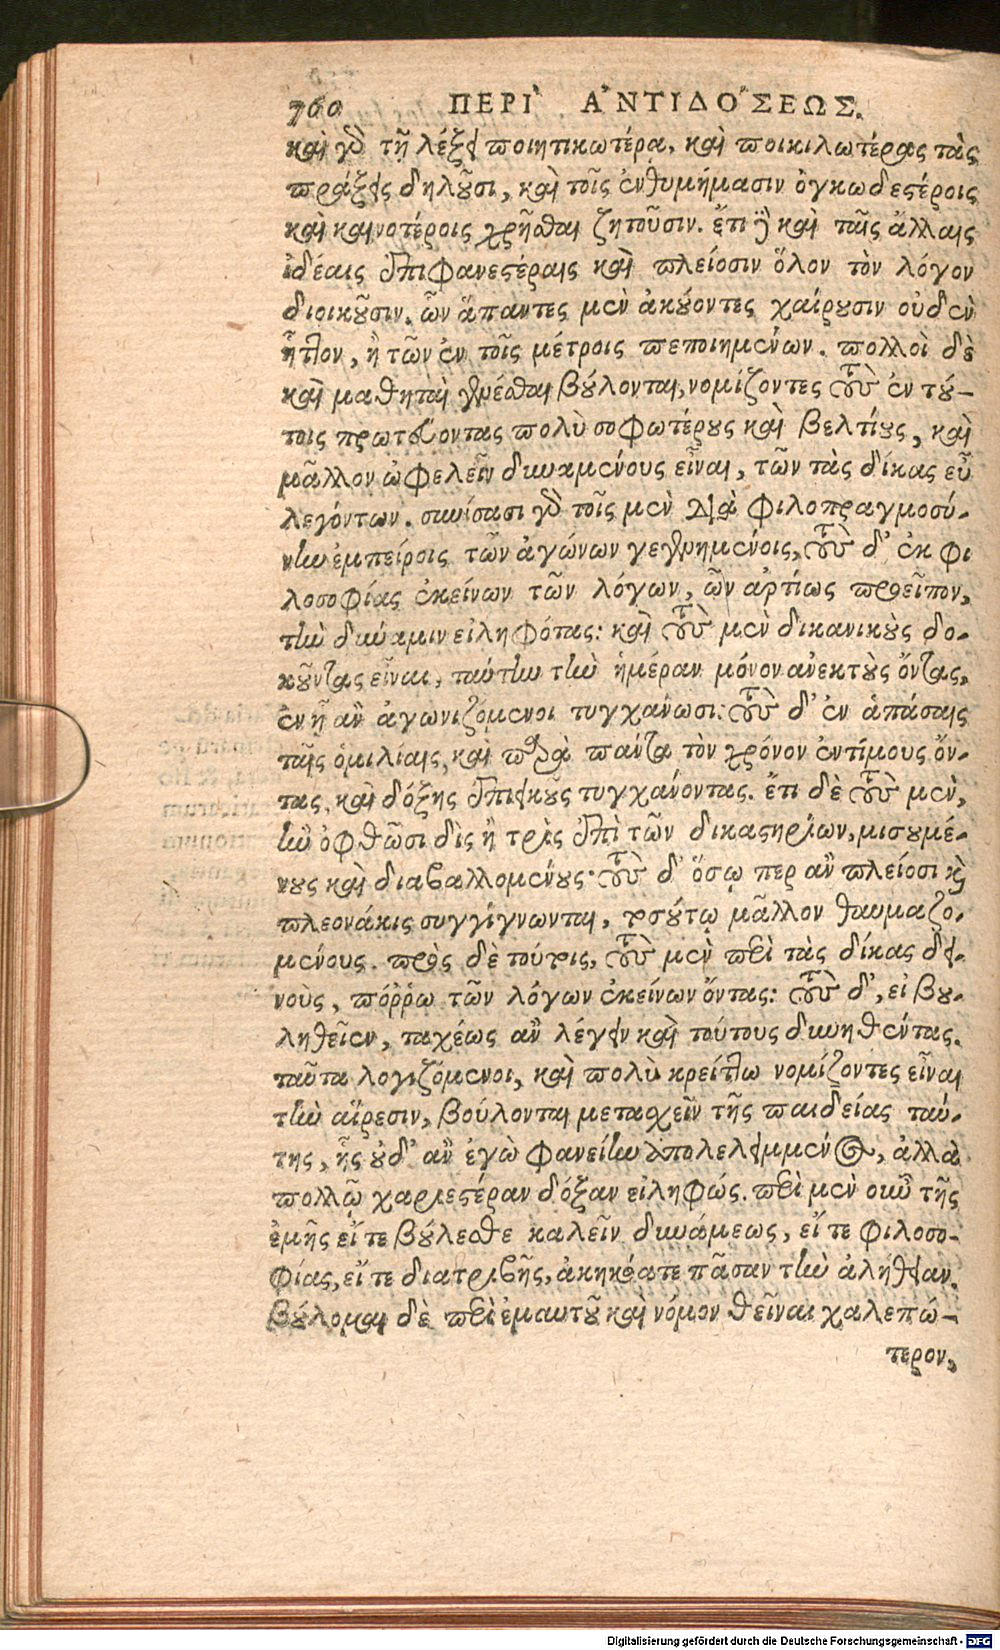 760 ΠΕΡΙ ἈΝΤΙΔΌΣΕΩΣ.
καὶ γὰρ τῇ λέξει ποιητικωτέρᾳ, καὶ ποικιλωτέρας τὰς
πράξεις δηλοῦσι, καὶ τοῖς ἐνθυμήμασιν ὀγκωδεστέροις
καὶ καινοτέροις χρῆσθαι ζητοῦσιν. ἔτι δὲ καὶ ταῖς ἄλλαις
ἰδέαις ἐπιφανεστέραις καὶ πλείοσιν ὅλον τὸν λόγον
διοικοῦσιν. ὧν ἅπαντες μὲν ἀκούοντες χαίρουσιν οὐδὲν
ἧττον, ἢ τῶν ἐν τοῖς μέτροις πεποιημένων. πολλοὶ δὲ
καὶ μαθηταὶ γενέσθαι βούλονται, νομίζοντες τοὺς ἐν τού-
τοις πρωτεύοντας πολὺ σοφωτέρους καὶ βελτίους, καὶ
μᾶλλον ὠφελεῖν δυναμένους εἶναι, τῶν τὰς δίκας εὖ
λεγόντων. συνίσασι γὰρ τοῖς μὲν διὰ φιλοπραγμοσύ-
νην ἐμπείροις τῶν ἀγώνων γεγενημένοις, τοὺς δ' ἐκ φι
λοσοφίας ἐκείνων τῶν λόγων, ὧν ἀρτίως προεῖπον,
τὴν δύναμιν εἰληφότας: καὶ τοὺς μὲν δικανικοὺς δο-
κοῦντας εἶναι, ταύτην τὴν ἡμέραν μόνον ἀνεκτοὺς ὄντας,
ἐν ᾗ ἂν ἀγωνιζόμενοι τυγχάνωσι: τοὺς δ' ἐν ἁπάσαις
ταῖς ὁμιλίαις, καὶ παρὰ πάντα τὸν χρόνον ἐντίμους ὄν-
τας, καὶ δόξης ἐπιεικοῦς τυγχάνοντας. ἔτι δὲ τοὺς μὲν,
ἢν ὀφθῶσι δὶς ἢ τρὶς ἐπὶ τῶν δικαστηρίων, μισουμέ-
νους καὶ διαβαλλομένους· τοὺς δ' ὅσῳ περ ἂν πλείοσι καὶ
πλεονάκις συγγίγνωνται, τοσούτῳ μᾶλλον θαυμαζο-
μένους. πρὸς δὲ τούτοις, τοὺς μὲν περὶ τὰς δίκας δει-
νοὺς, πόῤῥω τῶν λόγων ἐκείνων ὄντας: τοὺς δ', εἰ βου-
ληθεῖεν, ταχέως ἂν λέγειν καὶ τούτους δυνηθέντας.
ταῦτα λογιζόμενοι, καὶ πολὺ κρείττω νομίζοντες εἶναι
τὴν αἵρεσιν, βούλονται μετασχεῖν τῆς παιδείας ταύ-
της, ἧς οὐδ' ἂν ἐγὼ φανείην ἀπολελειμμένος, ἀλλὰ
πολλῷ χαριεστέραν δόξαν εἰληφώς. περὶ μὲν οὖν τῆς
ἐμῆς εἴ τε βούλεσθε καλεῖν δυνάμεως, εἴ τε φιλοσο-
φίας, εἴ τε διατριβῆς, ἀκηκόατε πᾶσαν τὴν ἀλήθειαν.
βούλομαι δὲ περὶ ἐμαυτοῦ καὶ νόμον θεῖναι χαλεπώ-
τερον,
Digitalisierung gefördert durch die Deutsche Forschungsgemeinschaft - DFG